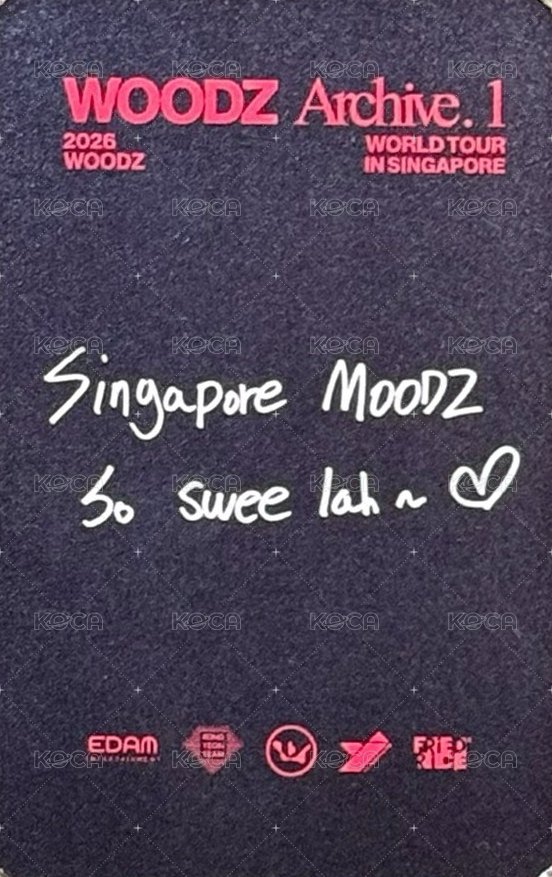 WOODZ Archive. 1
2026 WORLD TOUR
WOODZ IN SINGAPORE
Singapore MOODZ
So swee lah ~ ♡
EDAM
ENTERTAINMENT
KONG
YEON
TEAM
FRIED
RICE
KOCA